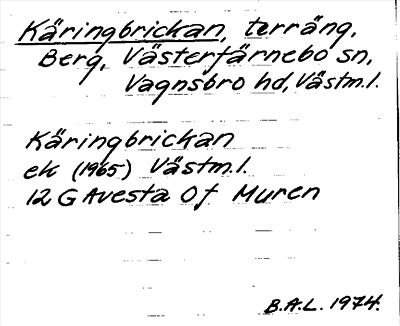 Käringbrickan, terräng.
Berg, Västerfärnebo sn,
Vagnsbro hd, Västm.l.
Käringbrickan
ek (1965) Västm.l.
12 G Avesta 0 f Muren
B.A.L. 1974.